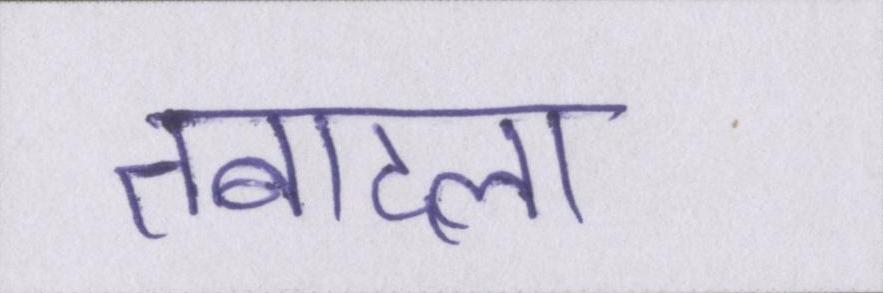 तबादला